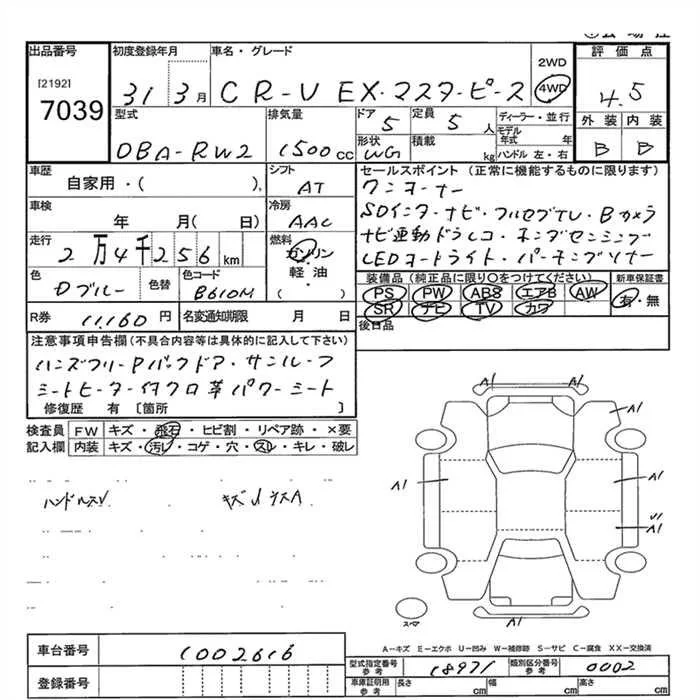 出品番号 初度登録年月 車名・グレード 評価点
[2192]
7039
31 3月 CR-V EX・マスターピース 2WD 4WD 4.5
型式 排気量 ドア 定員 ディーラー・並行 外装 内装
DBA-RW2 1500cc 5 5人 モデル年式 年 B B
形状 積載 ハンドル 左・右
WG kg
車歴 シフト セールスポイント(正常に機能するものに限ります)
自家用・( ), AT ワンオーナー
車検 冷房 SDインターナビ・フルセグTV・Bカメラ
年 月( 日) AAC ナビ連動ドラレコ・ホンダセンシング
走行 燃料 LEDヘッドライト・パーキングソナー
2万4千256km ガソリン
軽油・( )
装備品(純正品に限り○をつけてください) 新車保証書
色 色替 色コード PS PW ABS エアB AW 有・無
Dブルー B610M SR ナビ TV カワ
R券 11,160円 名変通知期限 月 日 後日品
注意事項申告欄(不具合内容等は具体的に記入して下さい)
ハンズフリーPバックドア・サンルーフ
シートヒーター付クロ革パワーシート
修復歴 有 [箇所 ]
検査員記入欄 FW キズ・飛石・ヒビ割・リペア跡・×要
内装 キズ・汚レ・コゲ・穴・スレ・キレ・破レ
ハンドルスレ
A1 A1
A1
A1
A1
スペア
A−キズ E−エクボ U−凹み W−補修跡 S−サビ C−腐食 XX−交換済
車台番号 1002616
型式指定番号 参考 18971 類別区分番号 参考 0002
登録番号
車庫証明用 参考 長さ cm 幅 cm 高さ cm